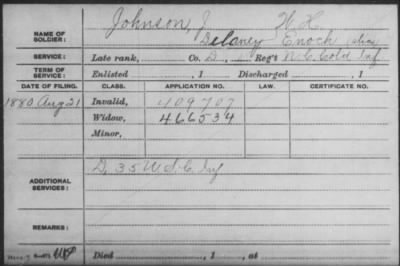 Johnson, J. H. H.
NAME OF SOLDIER: Delaney Enoch alias
SERVICE: Late rank, Co. D, Reg't N.C. Cold Inf
TERM OF SERVICE: Enlisted , 1 Discharged , 1
DATE OF FILING. CLASS. APPLICATION NO. LAW. CERTIFICATE NO.
1880 Aug 21 Invalid, 409707
Widow, 466534
Minor,
ADDITIONAL SERVICES: D, 35 U.S.C. Inf
REMARKS:
Died , 1 , at